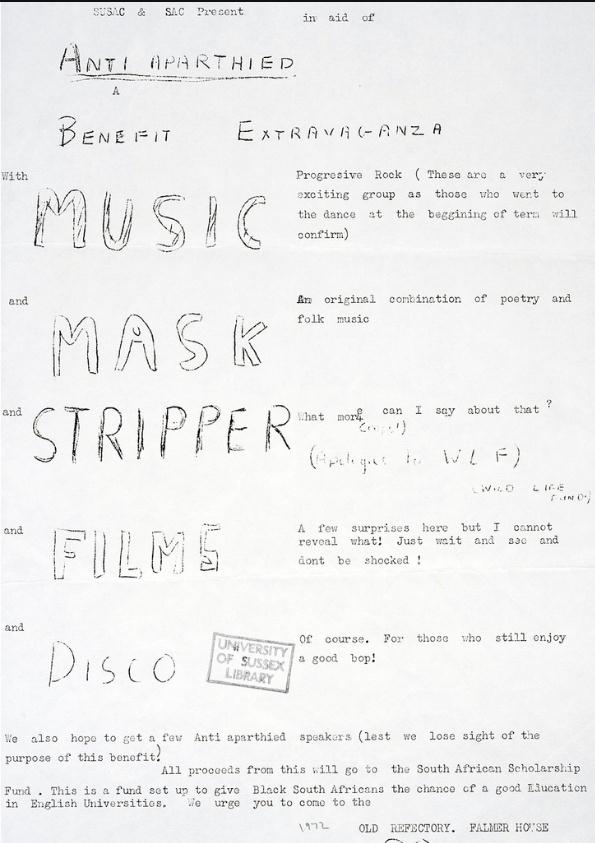 SUSAC & SAC Present in aid of
ANTI APARTHIED
A
BENEFIT EXTRAVAGANZA
With
MUSIC
Progresive Rock ( These are a very
exciting group as those who went to
the dance at the beggining of term will
confirm)
and
MASK
An original combination of poetry and
folk music
and
STRIPPER
What more can I say about that ?
(Apologies to W L F)
(WILD LIFE
FUND)
and
FILMS
A few surprises here but I cannot
reveal what! Just wait and see and
dont be shocked !
and
DISCO
Of course. For those who still enjoy
a good bop!
UNIVERSITY
OF SUSSEX
LIBRARY
We also hope to get a few Anti aparthied speakers (lest we lose sight of the
purpose of this benefit!
All proceeds from this will go to the South African Scholarship
Fund . This is a fund set up to give Black South Africans the chance of a good Education
in English Universities. We urge you to come to the
1972 OLD REFECTORY. FALMER HOUSE